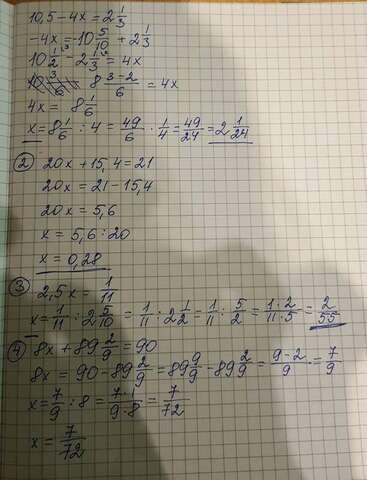 10,5 - 4x = 2 1/3
-4x = -10 5/10 + 2 1/3
10 1/2 - 2 1/3 = 4x
8 (3-2)/6 = 4x
4x = 8 1/6
x = 8 1/6 : 4 = 49/6 · 1/4 = 49/24 = 2 1/24
② 20x + 15,4 = 21
20x = 21 - 15,4
20x = 5,6
x = 5,6 : 20
x = 0,28
③ 2,5x = 1/11
x = 1/11 : 2 5/10 = 1/11 : 2 1/2 = 1/11 : 5/2 = (1·2)/(11·5) = 2/55
④ 8x + 89 2/9 = 90
8x = 90 - 89 2/9 = 89 9/9 - 89 2/9 = (9-2)/9 = 7/9
x = 7/9 : 8 = (7·1)/(9·8) = 7/72
x = 7/72